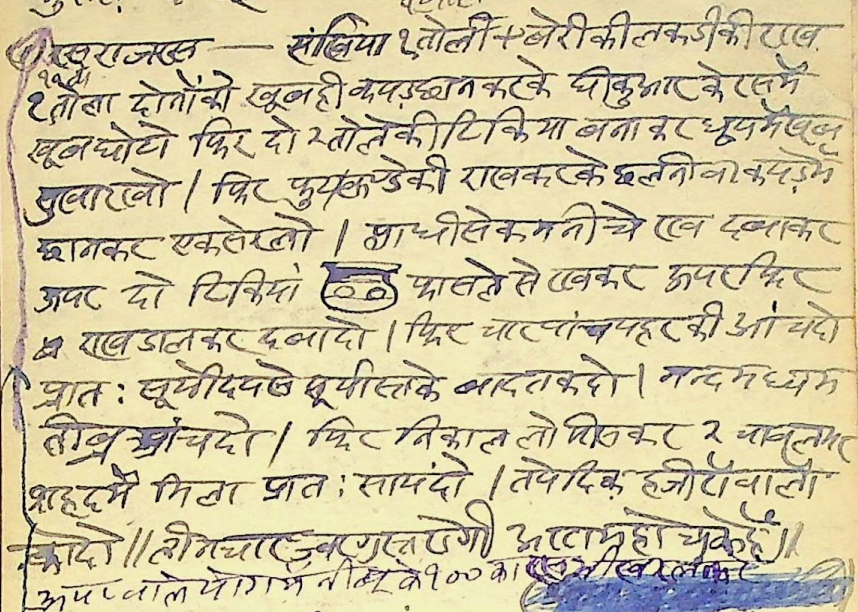 रसराजरस — संखिया १ तोला + बेरी की लकडी की राख
१ तोला दोनों को खूब ही कपड़छान करके घीकुमार के रस में
खूब घोटो फिर दो २ तोले की टिकिया बनाकर धूप में खूब
सुखा रखो / फिर कण्डे की राख करके छलनी वा कपड़े में
छानकर एक सेर लो / आधी से कम नीचे रख दबाकर
ऊपर दो टिकियां फासले से रखकर ऊपर फिर
राख डालकर दबा दो / फिर चार पांच पहर की आंच दो
प्रात: सूर्योदय से सूर्यास्त के बाद तक दो / मन्द मध्यम
तीव्र आंच दो / फिर निकाल लो पीसकर २ चावल भर
शहद में मिला प्रात: सायं दो / तपेदिक़ हजीरां वालों
को दो // तीन चार रोगी आराम हो चुके हैं //
ऊपर वाले योग में नीम्बू के १००